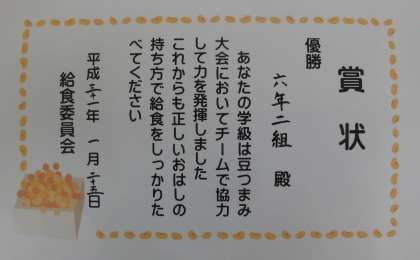 賞状
優勝
六年二組 殿
あなたの学級は豆つまみ
大会においてチームで協力
して力を発揮しました
これからも正しいおはしの
持ち方で給食をしっかりた
べてください
平成三十一年 一月二十五日
給食委員会